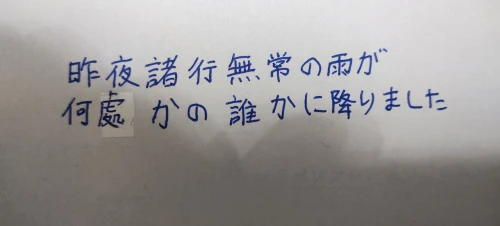 昨夜諸行無常の雨が
何處かの誰かに降りました